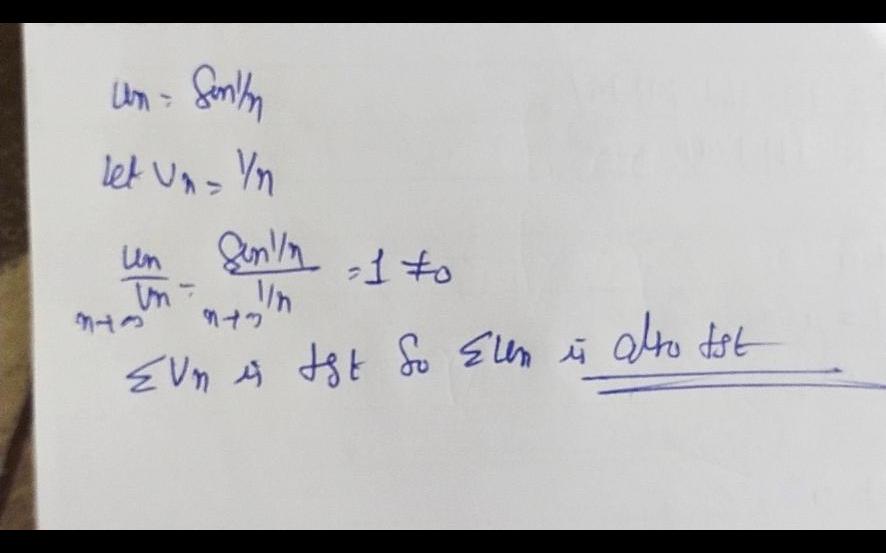 un = Sin 1/n
let Vn = 1/n
un/Vn = Sin 1/n / 1/n = 1 ≠ 0
n→∞ n→∞
ΣVn is dgt So Σun is also dgt